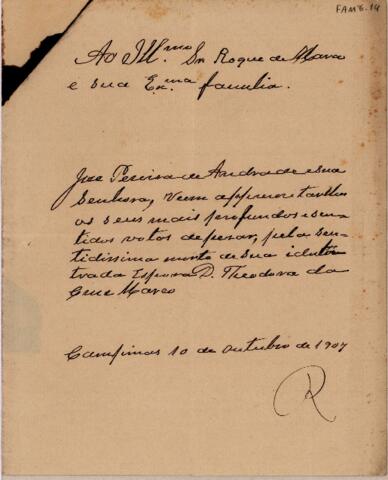 FAM 6.14
Ao Ill.mo Snr Roque de Marco
e sua Ex.ma familia.
José Pereira de Andrade e sua
Senhora, vem appresentar lhes
os seus mais profundos e sen-
tidos votos de pesar, pela sen-
tidissima morte de sua idola-
trada Esposa D. Theodora da
Cruz Marco
Campinas 10 de Outubro de 1907
R